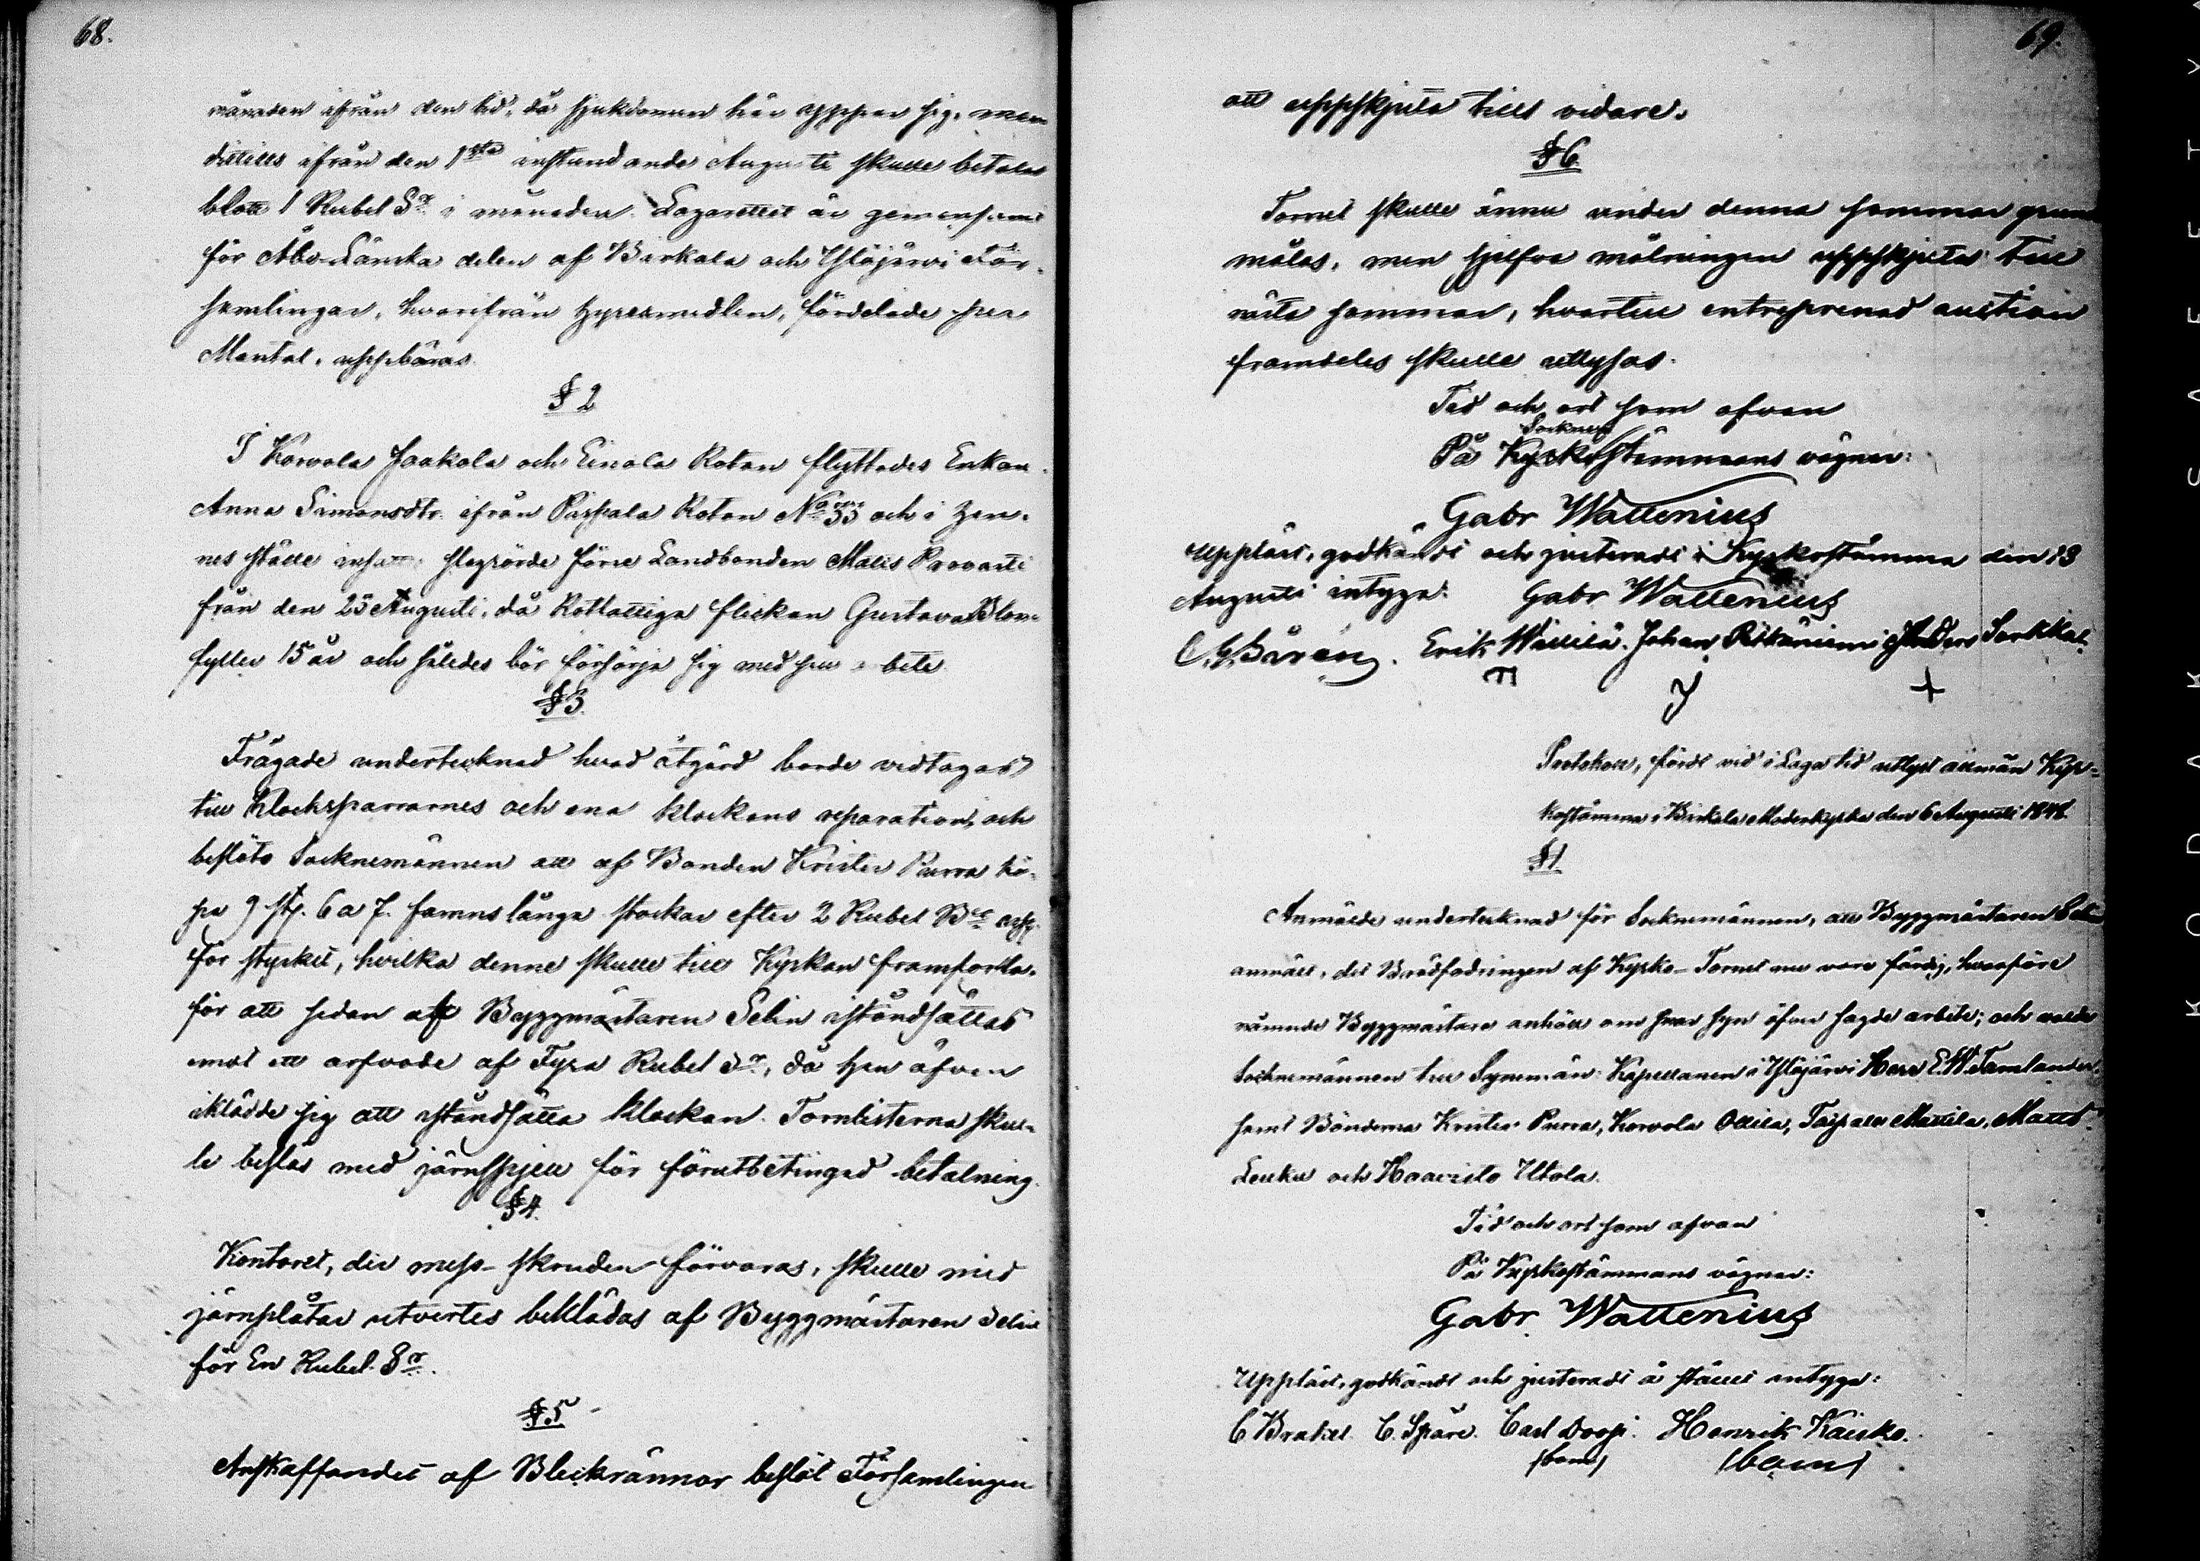 68.
månaden ifrån den tid, då sjukdomen här yppar sig, men
dittills ifrån den 1sta instundande Augusti skulle betalas
blott 1 Rubel Sr i månaden. Lazarettet är gemensamt
för Åbo-Länska delen af Birkala och Ylöjärvi För-
samlingar, hvarifrån hyresmedlen, fördelade per
Mantal, uppbäras.
§ 2
I Korvola Jaakola och Einola Rotan flyttades Enkan
Anna Simonsdtr. ifrån Paispala Rotan No 33 och i hen-
nes ställe insattes slagrörde förre Landbonden Matts Provasti
från den 25 Augusti, då Rotlottiga flickan Gustava Blom
fyller 15 år och således bör försörja sig med sitt arbete.
§ 3.
Frågade undertecknad hvad åtgärd borde vidtagas
till Klocksparrarnes och ena klockans reparation, och
beslöto Socknemännen att af Bonden Krister Purra kö-
pa 9 st. 6 a 7. famns långa stockar efter 2 Rubel Bco assig.
för stycket, hvilka denne skulle till Kyrkan framforsla,
för att sedan af Byggmästaren Selin iståndsättas
emot ett arfvode af Fyra Rubel Sr, då han äfven
iklädde sig att iståndsätta klockan. Tornlisterna skul-
le beslås med järnspjell för förutbetingad betalning.
§ 4.
Kontoret, der mess-skruden förvaras, skulle med
järnplåtar utvertes beklädas af Byggmästaren Selin
för En Rubel Sr.
§ 5
Anskaffandet af Bleckrännor beslöt Församlingen
69.
att uppskjuta tills vidare.
§ 6
Tornet skulle ännu under denna sommar grund
målas, men sjelfva målningen uppskjutas till
nästa sommar, hvartill entreprenad auction
framdeles skulle utlysas.
Tid och ort som ofvan
Socknens
På Kyrkostämmans vägnar:
Gabr Wallenius
Uppläst, godkändt och justeradt i Kyrkostämma den 13
Augusti intyga: Gabr Wallenius
Erik Wällilä. Johan Pitkäniemi Anders Sorkkal
Protokoll, fördt vid i Laga tid utlyst allmän Kyr-
kostämma i Birkala Moderkyrka den 6 Augusti 1848.
§ 1
Anmälde undertecknad för Socknemännen, att Byggmästaren Selin
anmält, det Brädfodringen af Kyrko-Tornet nu vore färdig, hvarföre
nämnde Byggmästare anhöll om snar syn öfver sagde arbete; och valde
Socknemännen till Synemän: Kapellanen i Ylöjärvi Herr E.W. Tamlander
samt Bönderna Krister Purra, Korvola Ollila, Taipale Mattila, Matts
Leuku och Haavisto Uotola.
Tid och ort som ofvan
På Kyrkostämmans vägnar:
Gabr. Wallenius
Uppläst, godkändt och justeradt å stället intyga:
C Brakel. C. Spåre. Carl Doopi. Henrik Kaisko.
(bom) (bom)